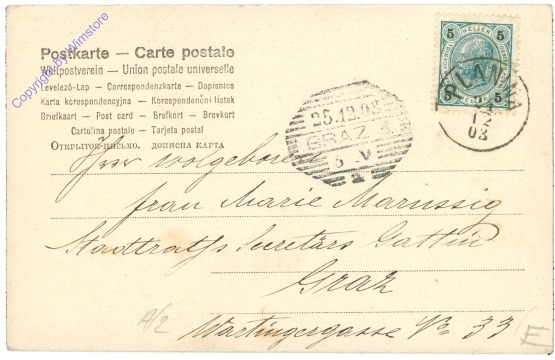 Postkarte — Carte postale
Weltpostverein — Union postale universelle
Levelező-Lap — Correspondenzkarte — Dopisnice
Karta korespondencyjna — Korespondenční lístek
Briefkaart — Post card — Brefkort — Brevkort
Cartolina postale — Tarjeta postal
Открытое-письмо. дописна карта
5 HELLER 5
5 5
PLANINA
12
03
25.12.03
GRAZ 1
5 V
1
Copyright by Wimstore
Ihrer wolgeboren
frau Marie Marussig
Stadtraths Secretärs Gattin
Graz
Wartingergasse No 33
A/2
E